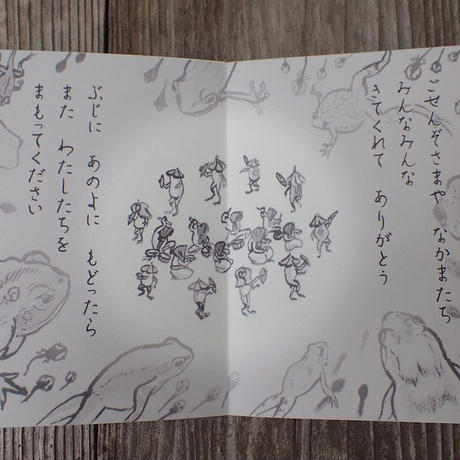 ごせんぞさまや なかまたち
みんなみんな
きてくれて ありがとう
ぶじに あのよに もどったら
また わたしたちを
まもってください